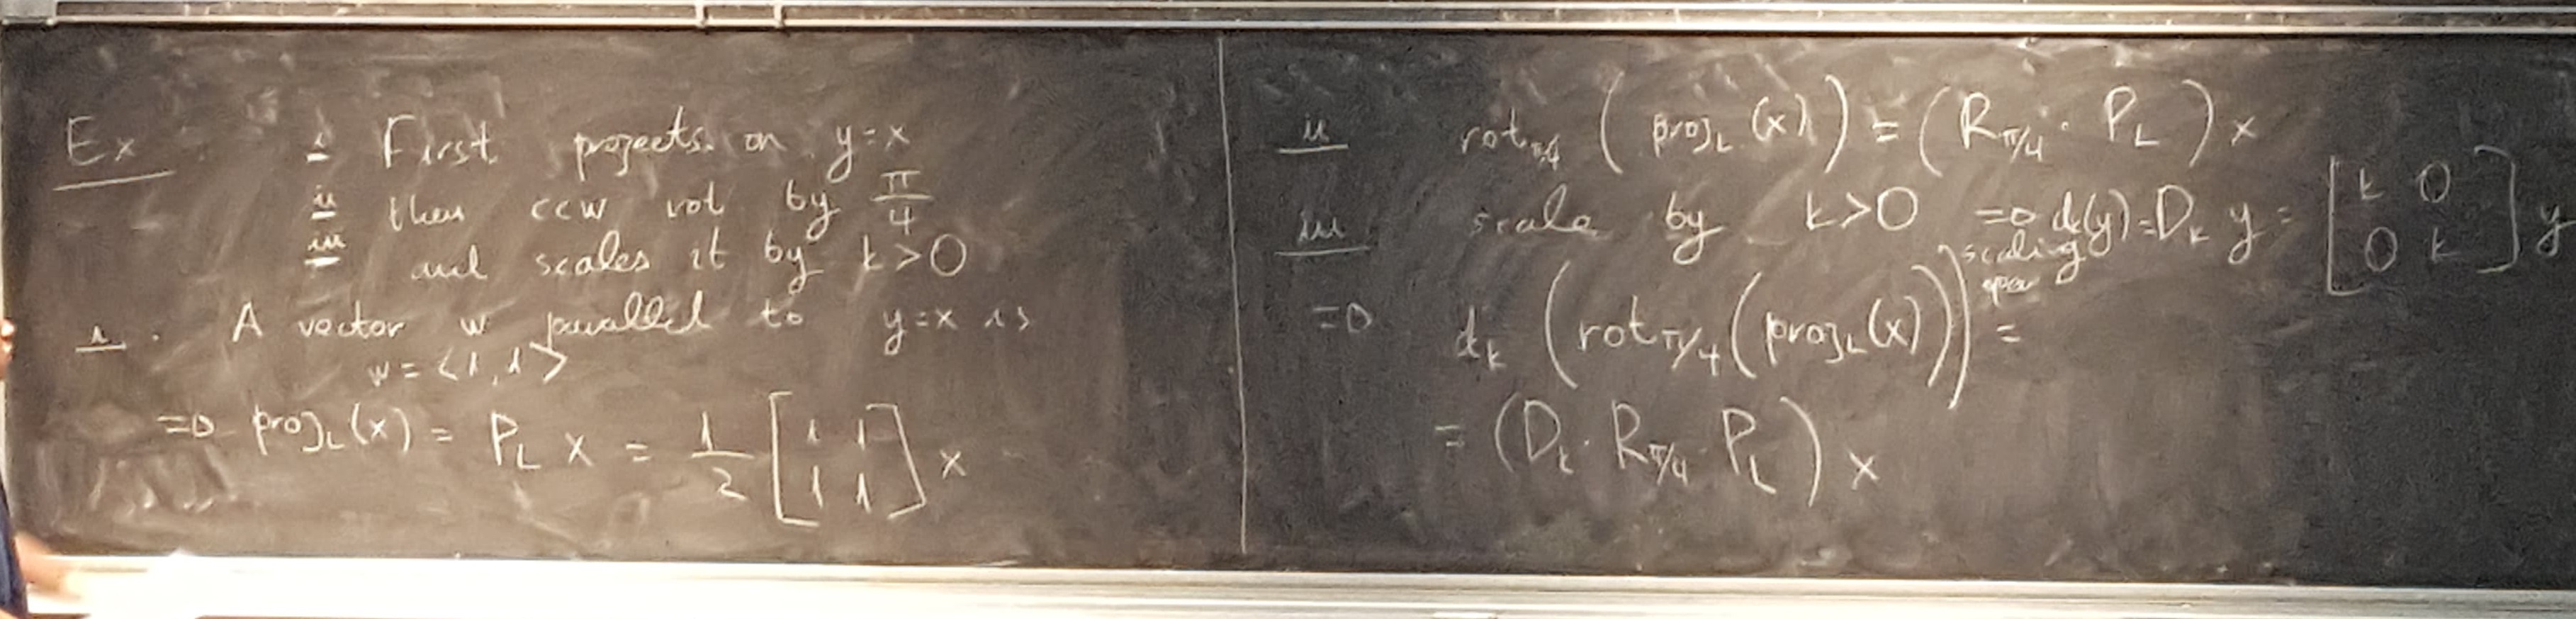 Ex i First projects on y=x
ii then ccw rot by π/4
iii and scales it by k>0
i. A vector w parallel to y=x is
w = <1,1>
⇒ proj_L(x) = P_L x = 1/2 [1 1; 1 1] x
ii rot_π/4 ( proj_L (x) ) = ( R_π/4 · P_L ) x
iii scale by k>0 ⇒ d_k(y) = D_k y = [k 0; 0 k] y
scaling
⇒ d_k ( rot_π/4 ( proj_L (x) ) ) =
= ( D_k · R_π/4 · P_L ) x